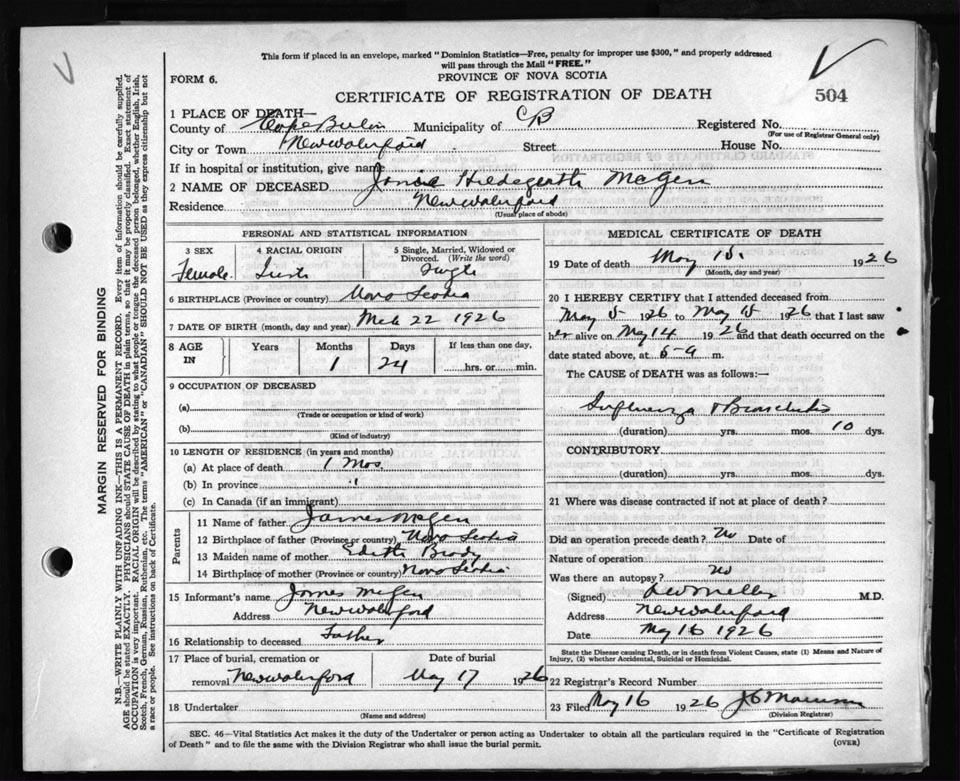 This form if placed in an envelope, marked "Dominion Statistics—Free, penalty for improper use $300," and properly addressed
will pass through the Mail "FREE."
FORM 6.
PROVINCE OF NOVA SCOTIA
CERTIFICATE OF REGISTRATION OF DEATH
504
1 PLACE OF DEATH—
County of Cape Breton Municipality of CB Registered No.
(For use of Registrar General only)
City or Town New Waterford Street House No.
If in hospital or institution, give name
2 NAME OF DECEASED Hildegarth
Residence New Waterford
(Usual place of abode)
PERSONAL AND STATISTICAL INFORMATION
3 SEX 4 RACIAL ORIGIN 5 Single, Married, Widowed or Divorced. (Write the word)
Female Single
6 BIRTHPLACE (Province or country) Nova Scotia
7 DATE OF BIRTH (month, day and year) Mch 22 1926
8 AGE IN Years Months Days If less than one day,
1 24 hrs. or min.
9 OCCUPATION OF DECEASED
(a)
(Trade or occupation or kind of work)
(b)
(Kind of industry)
10 LENGTH OF RESIDENCE (in years and months)
(a) At place of death 1 Mos
(b) In province "
(c) In Canada (if an immigrant)
Parents
11 Name of father James
12 Birthplace of father (Province or country) Nova Scotia
13 Maiden name of mother Edith Brody
14 Birthplace of mother (Province or country) Nova Scotia
15 Informant's name James
Address New Waterford
16 Relationship to deceased Father
17 Place of burial, cremation or removal New Waterford
Date of burial May 17 1926
18 Undertaker
(Name and address)
MEDICAL CERTIFICATE OF DEATH
19 Date of death May 15 1926
(Month, day and year)
20 I HEREBY CERTIFY that I attended deceased from
May 1926 to May 15 1926 that I last saw
her alive on May 14 1926 and that death occurred on the
date stated above, at m.
The CAUSE of DEATH was as follows:—
Influenza & Bronchitis
(duration) yrs. mos. 10 dys.
CONTRIBUTORY
(duration) yrs. mos. dys.
21 Where was disease contracted if not at place of death?
Did an operation precede death? No Date of
Nature of operation
Was there an autopsy? No
(Signed) M.D.
Address New Waterford
Date May 16 1926
State the Disease causing Death, or in death from Violent Causes, state (1) Means and Nature of
Injury, (2) whether Accidental, Suicidal or Homicidal.
22 Registrar's Record Number
23 Filed May 16 1926
(Division Registrar)
SEC. 46—Vital Statistics Act makes it the duty of the Undertaker or person acting as Undertaker to obtain all the particulars required in the "Certificate of Registration
of Death" and to file the same with the Division Registrar who shall issue the burial permit.
(OVER)
MARGIN RESERVED FOR BINDING
N.B.—WRITE PLAINLY WITH UNFADING INK—THIS IS A PERMANENT RECORD. Every item of information should be carefully supplied.
AGE should be stated EXACTLY. PHYSICIANS should STATE CAUSE OF DEATH in plain terms, so that it may be properly classified. Exact statement of
OCCUPATION is very important. RACIAL ORIGIN will be described by stating to what people or tongue the deceased person belonged, whether English, Irish,
Scotch, French, German, Russian, Ruthenian, etc. The terms "AMERICAN" or "CANADIAN" SHOULD NOT BE USED as they express citizenship but not
a race or people. See instructions on back of Certificate.